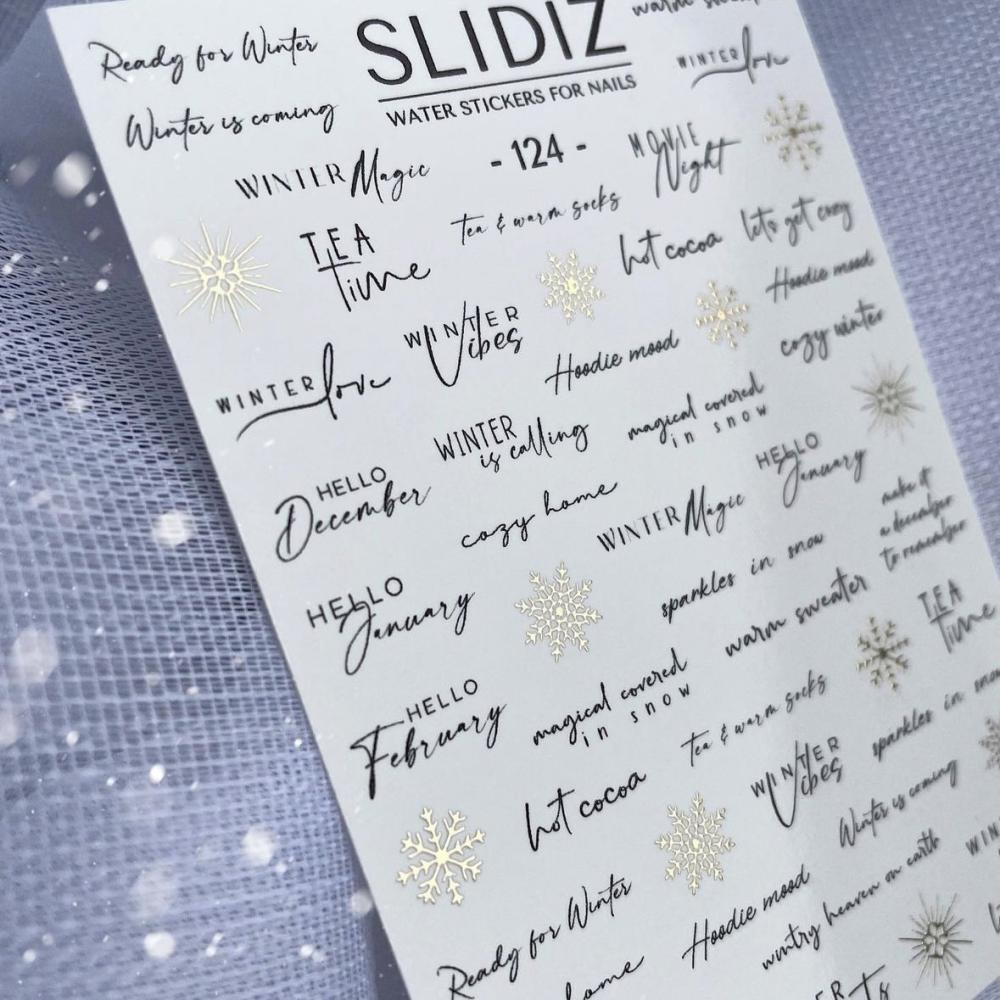 Ready for Winter
SLIDIZ
WATER STICKERS FOR NAILS
warm
WINTER love
Winter is coming
WINTER Magic
- 124 -
MOVIE
Night
TEA
time
tea & warm socks
hot cocoa
lets get cozy
Hoodie mood
WINTER
Vibes
cozy winter
WINTER love
Hoodie mood
WINTER
is calling
magical covered
in snow
HELLO
December
cozy home
WINTER Magic
HELLO
January
make it
a december
to remember
HELLO
January
sparkles in snow
TEA
time
warm sweater
HELLO
February
magical covered
in snow
tea & warm socks
sparkles in snow
hot cocoa
WINTER
Vibes
Winter is coming
Ready for Winter
Hoodie mood
wintry heaven on earth
home